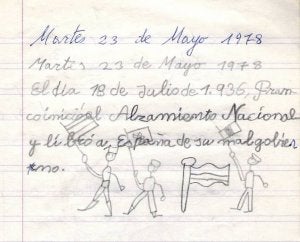 Martes 23 de Mayo 1978
Martes 23 de Mayo 1978
El día 18 de Julio de 1.936, Fran-
co inició al Alzamiento Nacional
y libró a España de su mal gobier
no.